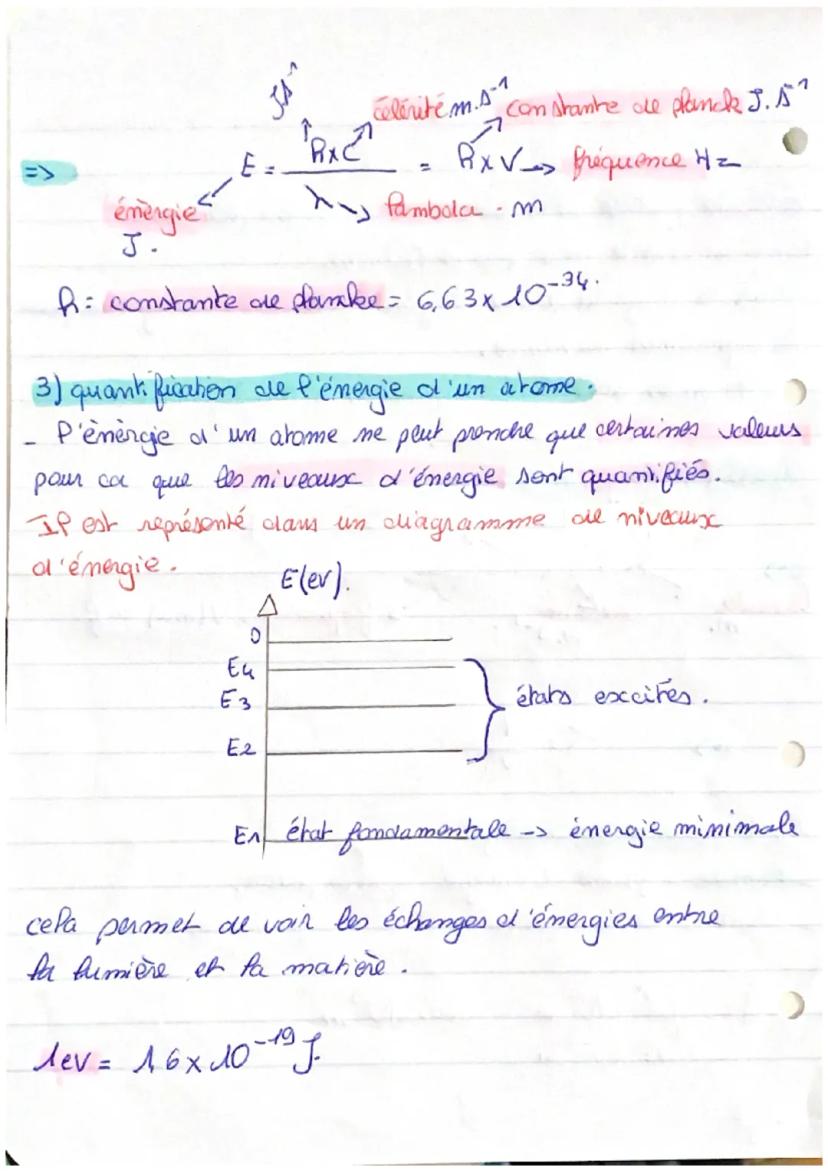 célérité m.s⁻¹ constante de planck J.s⁻¹
=> E = h x c / λ = h x ν -> fréquence Hz
énèrgie
J.
lambda . m
h : constante de planke = 6,63 x 10⁻³⁴.
3) quantification de l'énergie d'un atome.
- l'énèrgie d'un atome ne peut prendre que certaines valeurs
pour ca que les niveaux d'énergie sont quantifiés.
Il est représenté dans un diagramme de niveaux
d'énergie.
E(ev).
0
E4
E3
états excités.
E2
E1 état fondamentale -> énergie minimale
cela permet de voir les échanges d'énergies entre
la lumière et la matière.
1ev = 1,6 x 10⁻¹⁹ J.